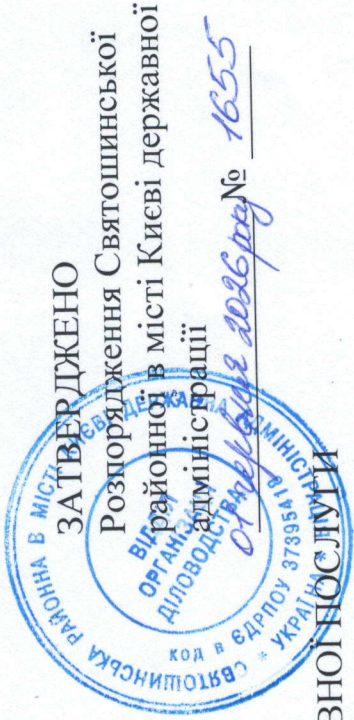 ЗАТВЕРДЖЕНО
Розпорядження Святошинської
районної в місті Києві державної
адміністрації
01 червня 2026 року № 1655
ВНОЇ ПОСЛУГИ
СВЯТОШИНСЬКА РАЙОННА В МІСТІ КИЄВІ ДЕРЖАВНА АДМІНІСТРАЦІЯ
* УКРАЇНА
КОД В ЄДРПОУ 37395418
ВІДДІЛ
ОРГАНІЗАЦІЇ
ДІЛОВОДСТВА